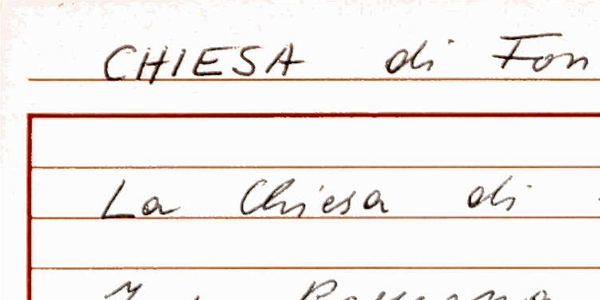 CHIESA di Fon
La Chiesa di